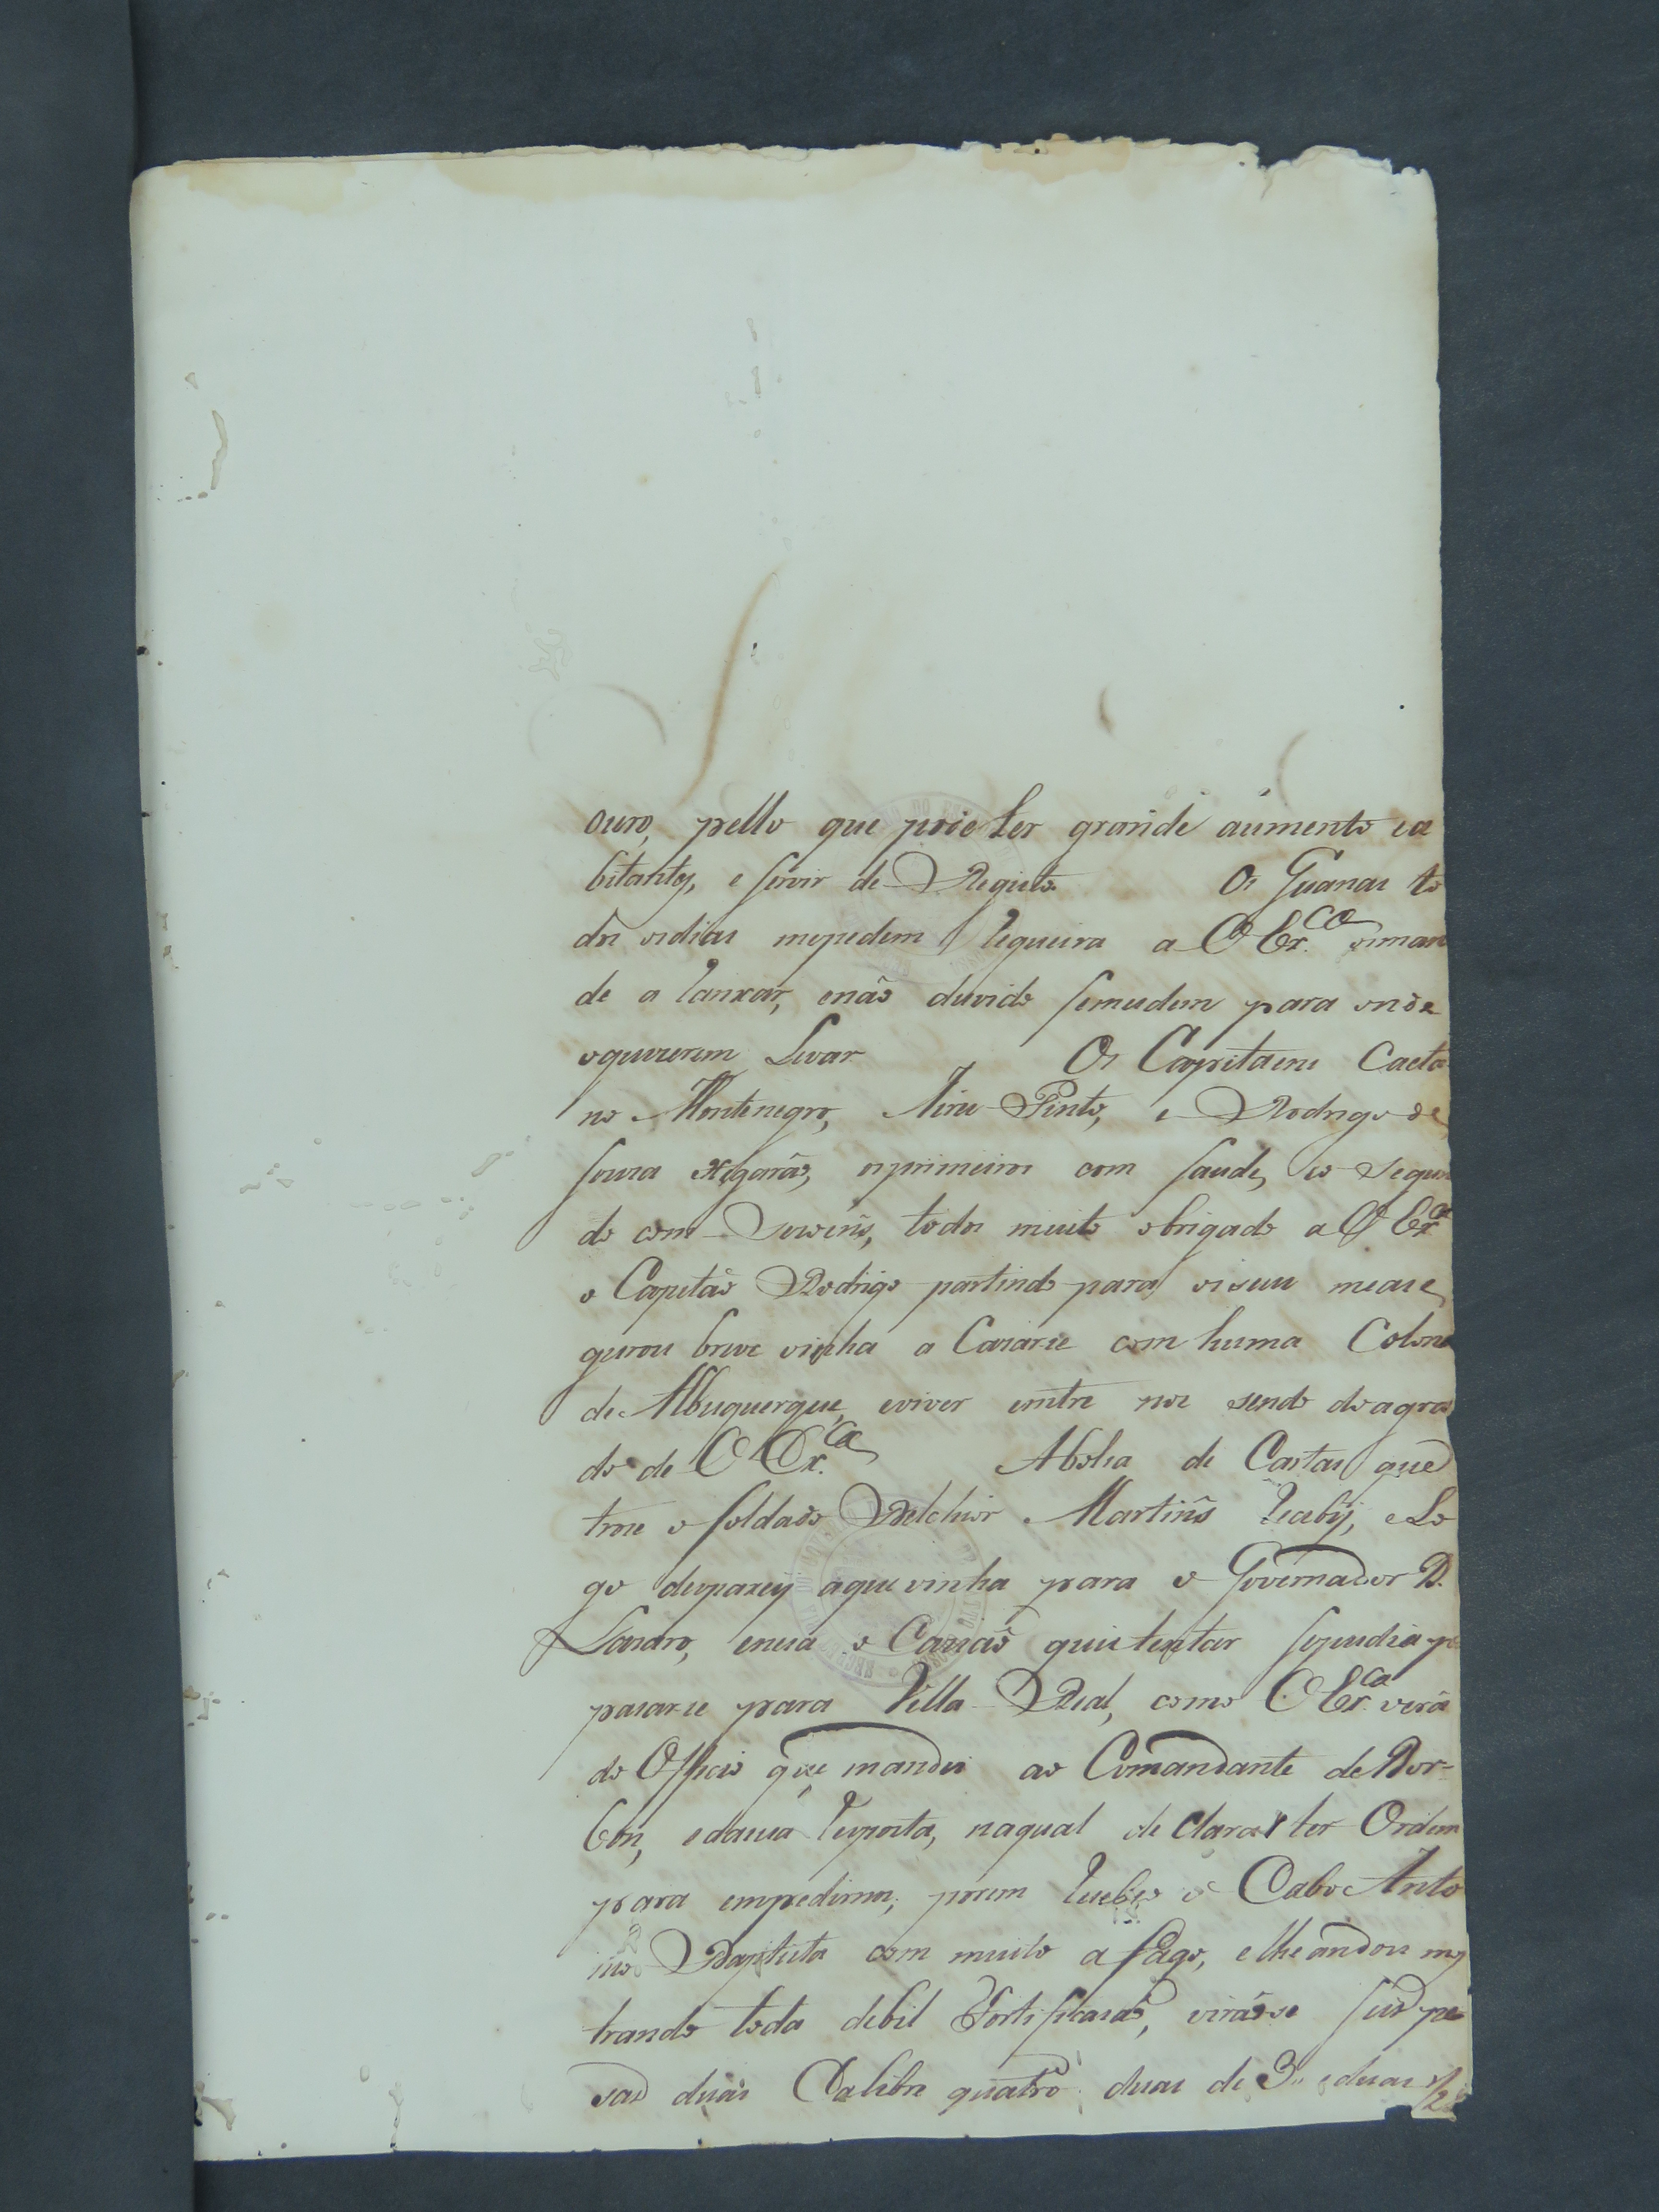 ouro, pello que póde ter grande aumento ea
bitantes, e servir de Registo Os Guanas to
dos osdias mepedem requeira a VExca. osman
de alanxar, enaõ duvido semudem para onde
oquizerem Levar Os Capitaens Caeta
no Montenegro, Aires Pinto, e Rodrigo de
souza xegaraõ, osprimeiros com saude, eo segun
do com sezoens, todos muito obrigado a VExca
o Capitaõ Rodrigo partindo para osseus mease
gurou breve vinha a Cazarse com huma Colona
de Albuquerque, eviver entre nos sendo doagra
do de VExca. Abolsa de Cartas que
troxe o soldado Belchior Martins recebÿ, eLo
go despaxeÿ aque vinha para o Governador D.
Lazaro, enessa o Caziaõ quis tentar sepodia
pasarse para Villa Real, como VExca. verá
do Officio que mandei ao Comandante de Bor-
bon, edasua resposta, naqual de clara ter Ordem
para empedirnos; porem recebeo o Cabo Anto
nio Baptista com muito afago, elhe andou mos
trando toda debil Fortificasaõ, viraõse seis pe
sas duas Calibre quatro duas de 3 eduas 1/2